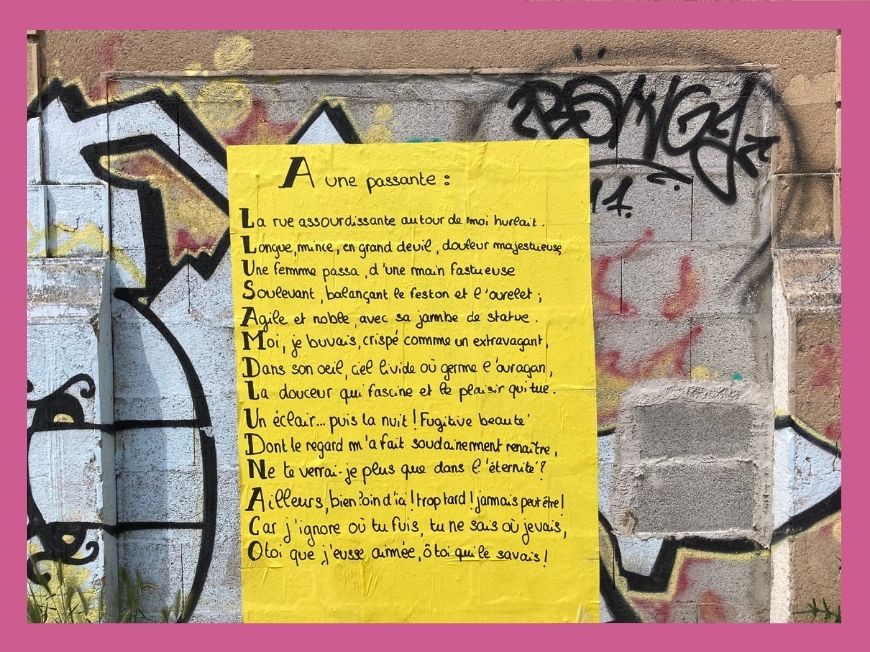 BÖNGY
11.
A une passante :
La rue assourdissante autour de moi hurlait.
Longue, mince, en grand deuil, douleur majestueuse
Une femme passa, d'une main fastueuse
Soulevant, balançant le feston et l'ourelet ;
Agile et noble, avec sa jambe de statue.
Moi, je buvais, crispé comme un extravagant,
Dans son oeil, ciel livide où germe l'ouragan,
La douceur qui fascine et le plaisir qui tue.
Un éclair... puis la nuit ! Fugitive beauté
Dont le regard m'a fait soudainement renaître,
Ne te verrai-je plus que dans l'éternité ?
Ailleurs, bien loin d'ici ! trop tard ! jamais peut être !
Car j'ignore où tu fuis, tu ne sais où je vais,
O toi que j'eusse aimée, ô toi qui le savais !